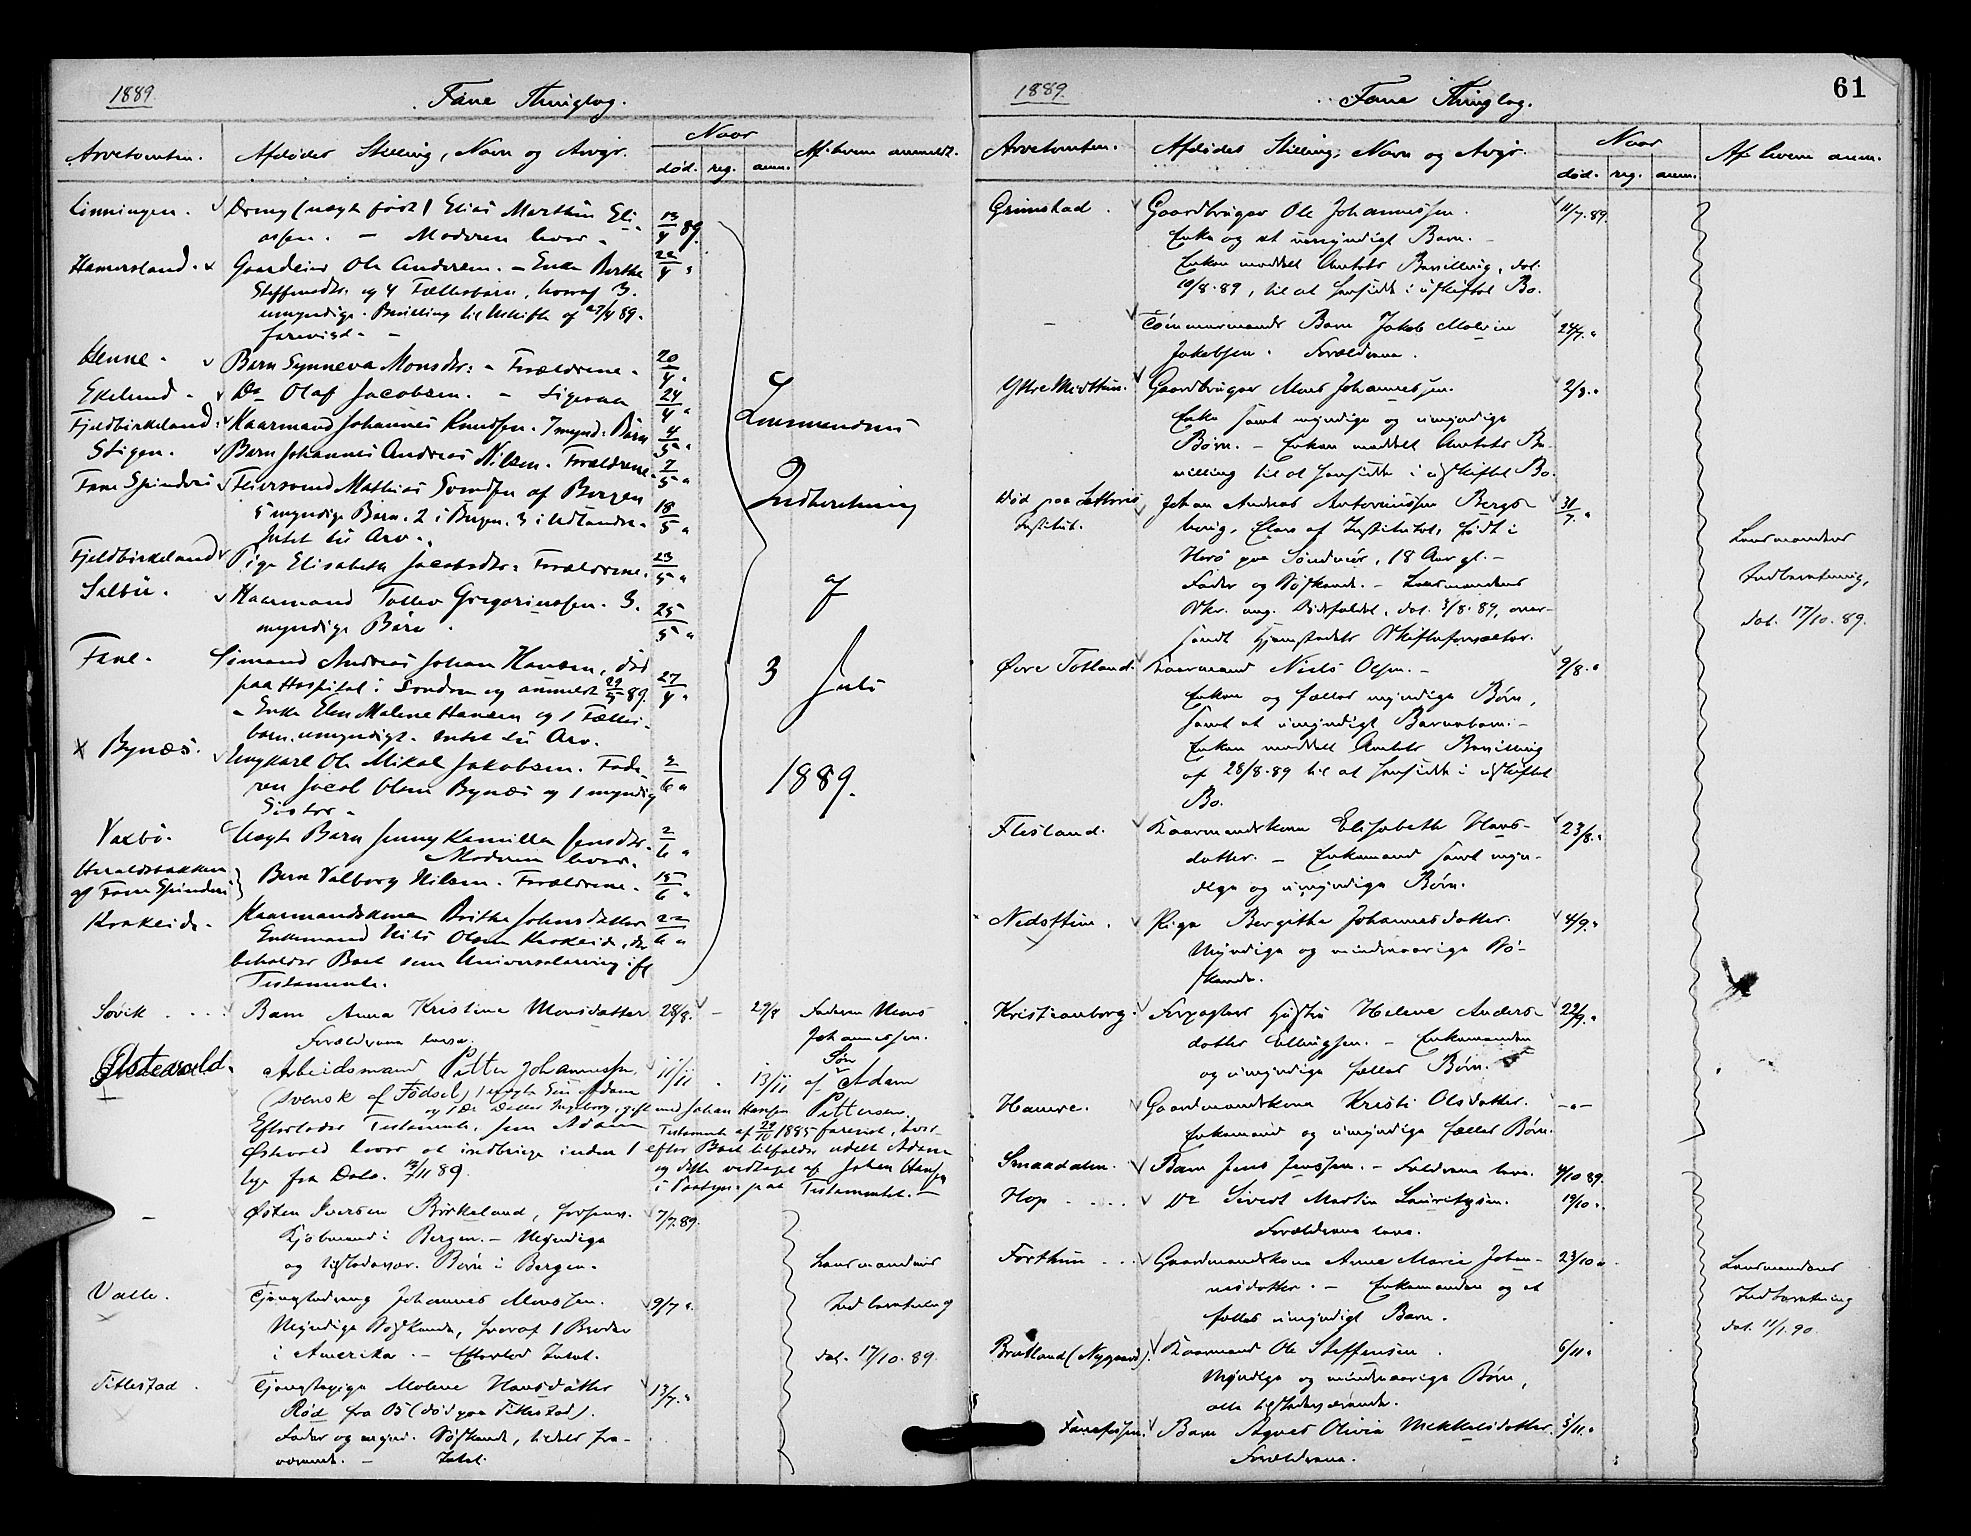 1889.
Fane Thinglag.
Naar
Arvetomten. Afdødes Stilling, Navn og Arvgr. død. reg. anm. Af hvem anmeldt.
Linningen. Dreng (uægte født) Elias Martin Eli- 13/4 89.
assen. – Moderen lever.
Hamersland. Gaardeier Ole Andersen. – Enke Berthe 22/4 "
Steffensdtr. og 4 Fællesbørn, hvoraf 3
umyndige. Bevilling til Uskifte af 27/4 89.
forevist. –
Henne. Barn Synneva Monsdtr. – Forældrene. 20/4 "
Ekelund. Do Olaf Jacobsen. – Ligesaa 24/4 "
Fjeldbirkeland. Kaarmand Johannes Knudsen. 7 mynd. Børn 4/5 "
Stigen. Barn Johannes Andreas Nilsen. Forældrene. 7/5 "
Fane Spinderi Mathias Svendsen af Bergen 18/5 "
5 myndige Børn. 2 i Bergen. 3 i Udlandet.
Intet til Arv.
Fjeldbirkeland Pige Elisabeth Jacobsdtr. Forældrene. 23/5 "
Sælbu. Kaarmand Tollev Gregoriussen. 3 25/5 "
myndige Børn.
Fane. Sømand Andreas Johan Hansen, død 27/4 "
paa Hospital i London og anmeldt 29/5 89.
– Enke Elen Malene Hansen og 1 Fælles-
barn, umyndigt. Intet til Arv.
x Bynæs. Ungkarl Ole Mikal Jakobsen. Fade- 2/6 "
ren Jacob Olsen Bynæs og 1 myndig
Søster –
Vaxbø. Uægte Barn Jenny Kamilla Jensdtr. 2/6 "
Moderen lever.
Heraldsbakken
af Fane Spinderi Barn Valborg Nilsen. Forældrene. 15/6 "
Krokeide. Kaarmandskone Brithe Johnsdatter 22/6 "
Enkemand Nils Olsen Krokeide, der
beholder Boet som Universalarving ifl
Testamente.
Lensmandens
Indberetning
af
3 Juli
1889.
Søvik . . . Barn Anna Kristine Monsdatter 28/8. – 29/8 Faderen Mons
Forældrene leve. Johannessen.
Østervold. Arbeidsmand Petter Johannessen, 11/11 . 13/11 af Søn Adam
(svensk af Fødsel) 1 uægte Søn Adam
og 1 Do Datter Ingeborg, gift med Johan Hansen Pettersen.
Efterlader Testamente, som Adam Testamente af 29/10 1885 forevist, hvor-
Østvold lover at indbringe inden 1 efter Boet tilfalder udelt Adam
Uge fra Dato. 13/11 89. og dette vedtaget af Johan Hansen
i Paategn. paa Testamentet. –
– Østen Iversen Birkeland, forhenv. 7/7. 89.
Kjøbmand i Bergen. – Myndige
og tilstedevær. Børn i Bergen.
Valle. Tjenestedreng Johannes Monssen. 9/7 "
Myndige Søskende, hvoraf 1 Broder
i Amerika. – Efterlod Intet.
Lensmandens
Indberetning
dat. 17/10. 89.
Titlestad. Tjenestepige Malene Hansdatter 13/7. "
Rød fra Os (død paa Titlestad).
Fader og mynd. Søskende, tildels fra-
værende. – Intet.
1889.
Fane Thinglag.
61
Naar
Arvetomten. Afdødes Stilling, Navn og Arvgr. død. reg. anm. Af hvem anm.
Grimstad. Gaardbruger Ole Johannessen. 11/7. 89.
Enke og et umyndigt Barn. –
Enken meddelt Amtets Bevilling, dat.
10/8. 89, til at hensidde i uskiftet Bo.
– Tømmermands Barn Jakob Malvin 24/7. "
Jakobsen. Forældrene.
Ytre Midttun. Gaardbruger Mons Johannessen. 2/8. "
Enke samt myndige og umyndige
Børn. – Enken meddelt Amtets Be-
villing til at hensidde i uskiftet Bo.
Død paa Institut. Johan Andreas Antoniussen Bergs- 31/7. "
Elev af Institutet, født i
Herø paa Søndmør, 18 Aar gl. –
Fader og Søskende. – Lensmandens
Skr. ang. Dødsfaldet, dat. 3/8. 89, over-
sendt Hjemstedets Skifteforvalter.
Lensmandens
Indberetning,
dat. 17/10. 89.
Øvre Totland. Kaarmand Niels Olsen. – 9/8. "
Enken og fælles myndige Børn,
samt et umyndigt Barnebarn. –
Enken meddelt Amtets Bevilling
af 28/8. 89 til at hensidde i uskiftet
Bo.
Flesland. Kaarmandskone Elisabeth Hans- 23/8. "
datter. – Enkemand samt myn-
dige og umyndige Børn.
Nedsttun. Pige Bergithe Johannesdatter. 4/9. "
Myndige og mindreaarige Sø-
skende.
Kristianborg. Forpagters Hustru Helene Anders- 22/9. "
datter Ellingsen. – Enkemanden
og umyndige fælles Børn.
Hamre. Gaardmandskone Kristi Olsdatter. – " –
Enkemand og umyndige fælles Børn.
Smaadalen. Barn Jens Jenssen. – Forældrene leve. 4/10 89.
Hop . . . . Do Sivert Martin Lauritzsen. 19/10 "
Forældrene leve.
Forthun . . . Gaardmandskone Anne Marie Johan- 23/10 "
nesdatter. – Enkemanden og et
fælles umyndigt Barn.
Lensmandens
Indberetning
dat. 11/1. 90.
Bratland (Nygaard). Kaarmand Ole Steffensen. 6/11 "
Myndige og mindreaarige Børn,
alle tilstedeværende.
Fanefossen. Barn Agnes Olivia Mikkelsdatter. 5/11. "
Forældrene.